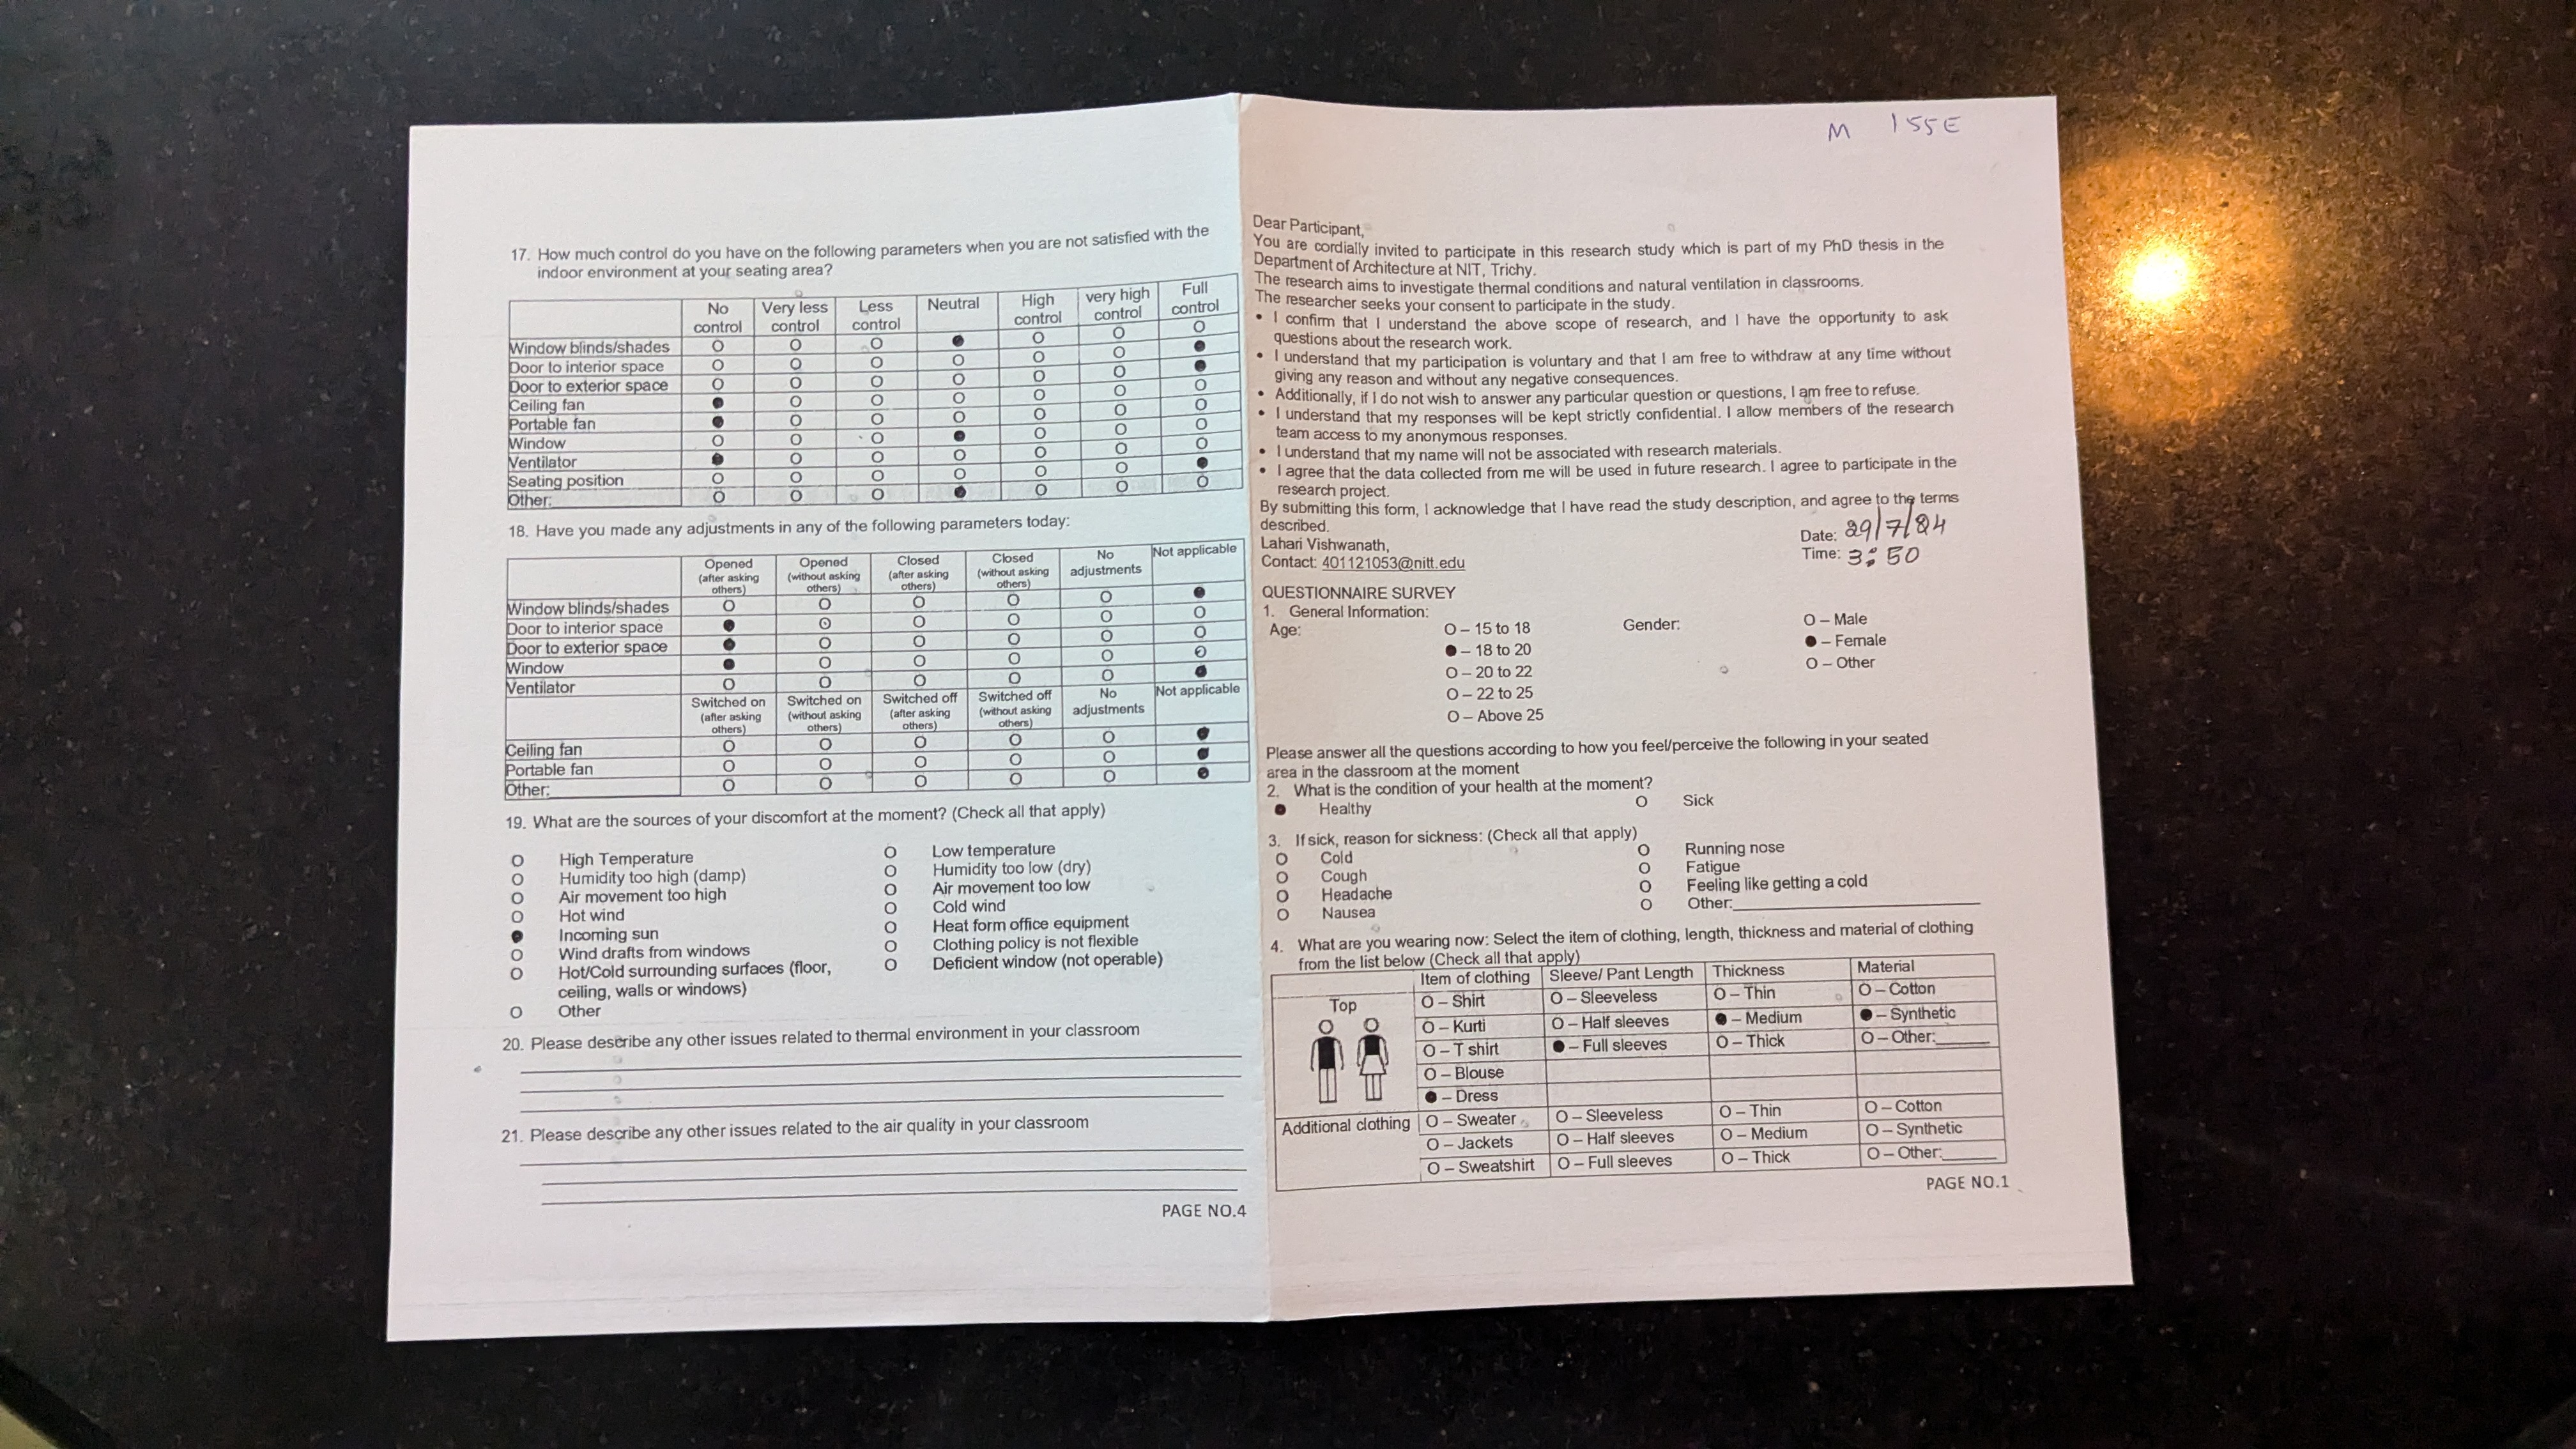 17. How much control do you have on the following parameters when you are not satisfied with the
indoor environment at your seating area?
No control Very less control Less control Neutral High control very high control Full control
Window blinds/shades O O O ● O O O
Door to interior space O O O O O O ●
Door to exterior space O O O O O O ●
Ceiling fan ● O O O O O O
Portable fan ● O O O O O O
Window O O O ● O O O
Ventilator ● O O O O O O
Seating position O O O O O O ●
Other: O O O ● O O O
18. Have you made any adjustments in any of the following parameters today:
Opened (after asking others) Opened (without asking others) Closed (after asking others) Closed (without asking others) No adjustments Not applicable
Window blinds/shades O O O O O ●
Door to interior space ● O O O O O
Door to exterior space ● O O O O O
Window ● O O O O O
Ventilator O O O O O ●
Switched on (after asking others) Switched on (without asking others) Switched off (after asking others) Switched off (without asking others) No adjustments Not applicable
Ceiling fan O O O O O ●
Portable fan O O O O O ●
Other: O O O O O ●
19. What are the sources of your discomfort at the moment? (Check all that apply)
O High Temperature O Low temperature
O Humidity too high (damp) O Humidity too low (dry)
O Air movement too high O Air movement too low
O Hot wind O Cold wind
● Incoming sun O Heat form office equipment
O Wind drafts from windows O Clothing policy is not flexible
O Hot/Cold surrounding surfaces (floor, O Deficient window (not operable)
ceiling, walls or windows)
O Other
20. Please describe any other issues related to thermal environment in your classroom
21. Please describe any other issues related to the air quality in your classroom
PAGE NO.4
M 155E
Dear Participant,
You are cordially invited to participate in this research study which is part of my PhD thesis in the
Department of Architecture at NIT, Trichy.
The research aims to investigate thermal conditions and natural ventilation in classrooms.
The researcher seeks your consent to participate in the study.
• I confirm that I understand the above scope of research, and I have the opportunity to ask
questions about the research work.
• I understand that my participation is voluntary and that I am free to withdraw at any time without
giving any reason and without any negative consequences.
• Additionally, if I do not wish to answer any particular question or questions, I am free to refuse.
• I understand that my responses will be kept strictly confidential. I allow members of the research
team access to my anonymous responses.
• I understand that my name will not be associated with research materials.
• I agree that the data collected from me will be used in future research. I agree to participate in the
research project.
By submitting this form, I acknowledge that I have read the study description, and agree to the terms
described.
Date: 29/7/24
Lahari Vishwanath,
Time: 3:50
Contact: 401121053@nitt.edu
QUESTIONNAIRE SURVEY
1. General Information:
Age: O – 15 to 18 Gender: O – Male
● – 18 to 20 ● – Female
O – 20 to 22 O – Other
O – 22 to 25
O – Above 25
Please answer all the questions according to how you feel/perceive the following in your seated
area in the classroom at the moment
2. What is the condition of your health at the moment?
● Healthy O Sick
3. If sick, reason for sickness: (Check all that apply)
O Cold O Running nose
O Cough O Fatigue
O Headache O Feeling like getting a cold
O Nausea O Other:
4. What are you wearing now: Select the item of clothing, length, thickness and material of clothing
from the list below (Check all that apply)
Item of clothing Sleeve/ Pant Length Thickness Material
Top O – Shirt O – Sleeveless O – Thin O – Cotton
O – Kurti O – Half sleeves ● – Medium ● – Synthetic
O – T shirt ● – Full sleeves O – Thick O – Other:
O – Blouse
● – Dress
Additional clothing O – Sweater O – Sleeveless O – Thin O – Cotton
O – Jackets O – Half sleeves O – Medium O – Synthetic
O – Sweatshirt O – Full sleeves O – Thick O – Other:
PAGE NO.1